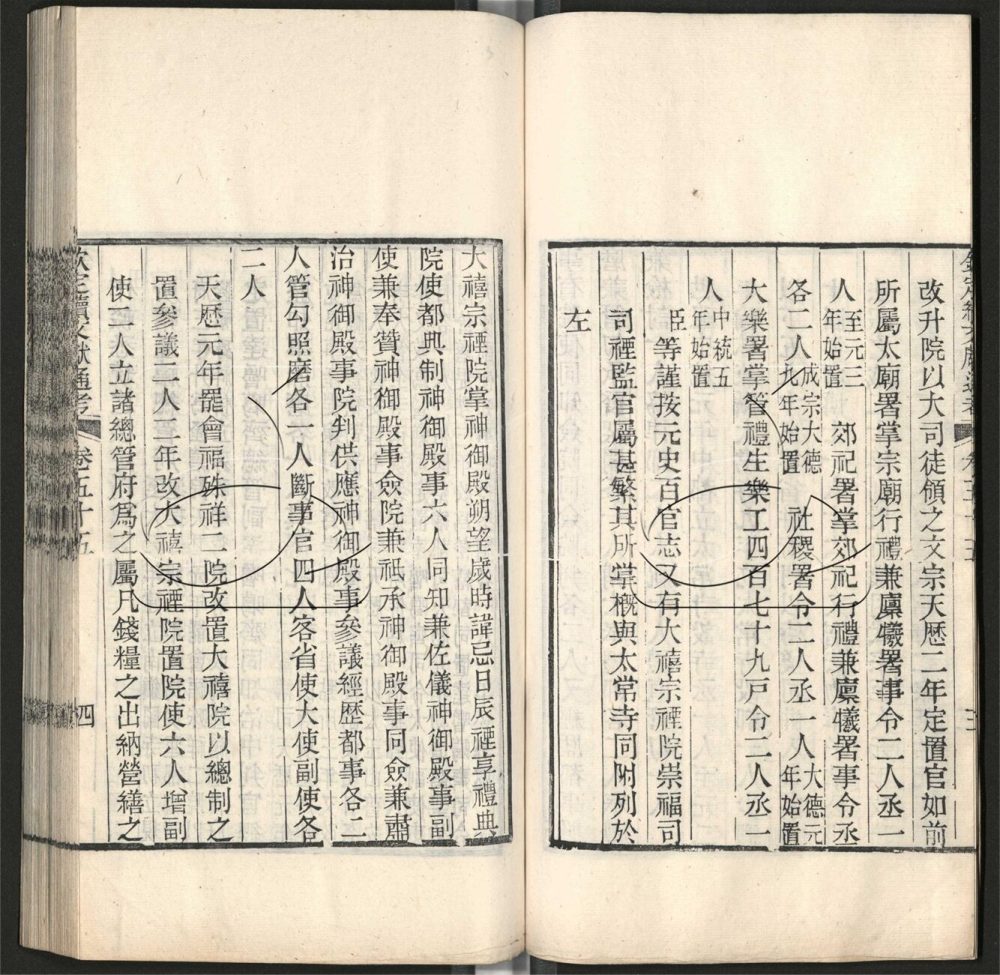 改升院以大司徒領之文宗天歴二年定置官如前
所屬太廟署掌宗廟行禮兼廩犧署事令二人丞一
人至元三年始置 郊祀署掌郊祀行禮兼廩犧署事令丞
各二人成宗大德九年始置 社稷署令二人丞一人大德元年始置
大樂署掌管禮生樂工四百七十九戸令二人丞一
人中統五年始置
臣等謹按元史百官志又有大禧宗禋院崇福司
司禋監官屬甚繁其所掌概與太常寺同附列於
左
大禧宗禋院掌神御殿朔望歲時諱忌日辰禋享禮典
院使都典制神御殿事六人同知兼佐儀神御殿事副
使兼奉贊神御殿事僉院兼祗承神御殿事同僉兼肅
治神御殿事院判供應神御殿事參議經歴都事各二
人管勾照磨各一人斷事官四人客省使大使副使各
二人
天歴元年罷會福殊祥二院改置大禧院以總制之
置參議二人二年改大禧宗禋院置院使六人增副
使二人立諸總管府爲之屬凡錢糧之出納營繕之
欽定續文獻通考 卷五十五 四